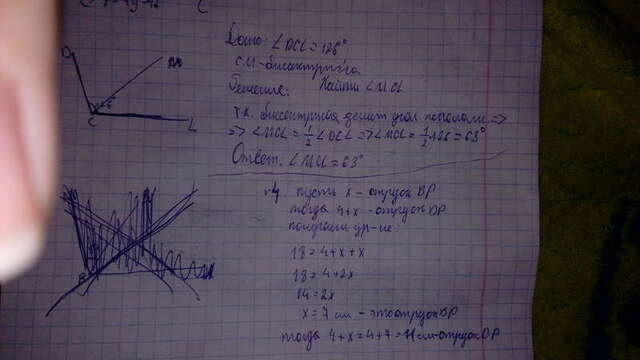 Дано: ∠DCL = 126°
CM - биссектриса.
Решение: Найти ∠MCL
D
M
C
L
т.к. биссектриса делит угол пополам =>
=> ∠MCL = 1/2 ∠DCL => ∠MCL = 1/2 126 = 63°
Ответ: ∠MCL = 63°
пусть x - отрезок BP
тогда 4+x - отрезок DP
получаем ур-ие:
18 = 4 + x + x
18 = 4 + 2x
14 = 2x
x = 7 см - это отрезок BP
тогда 4 + x = 4 + 7 = 11 см - отрезок DP